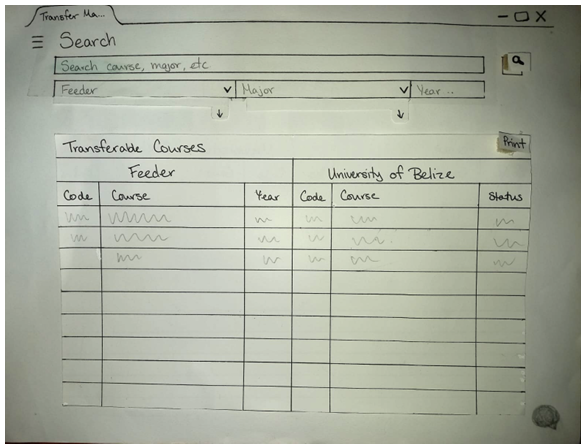 Transfer Ma...
Search
Search course, major, etc
Feeder Major Year ..
Transferable Courses Print
Feeder University of Belize
Code Course Year Code Course Status